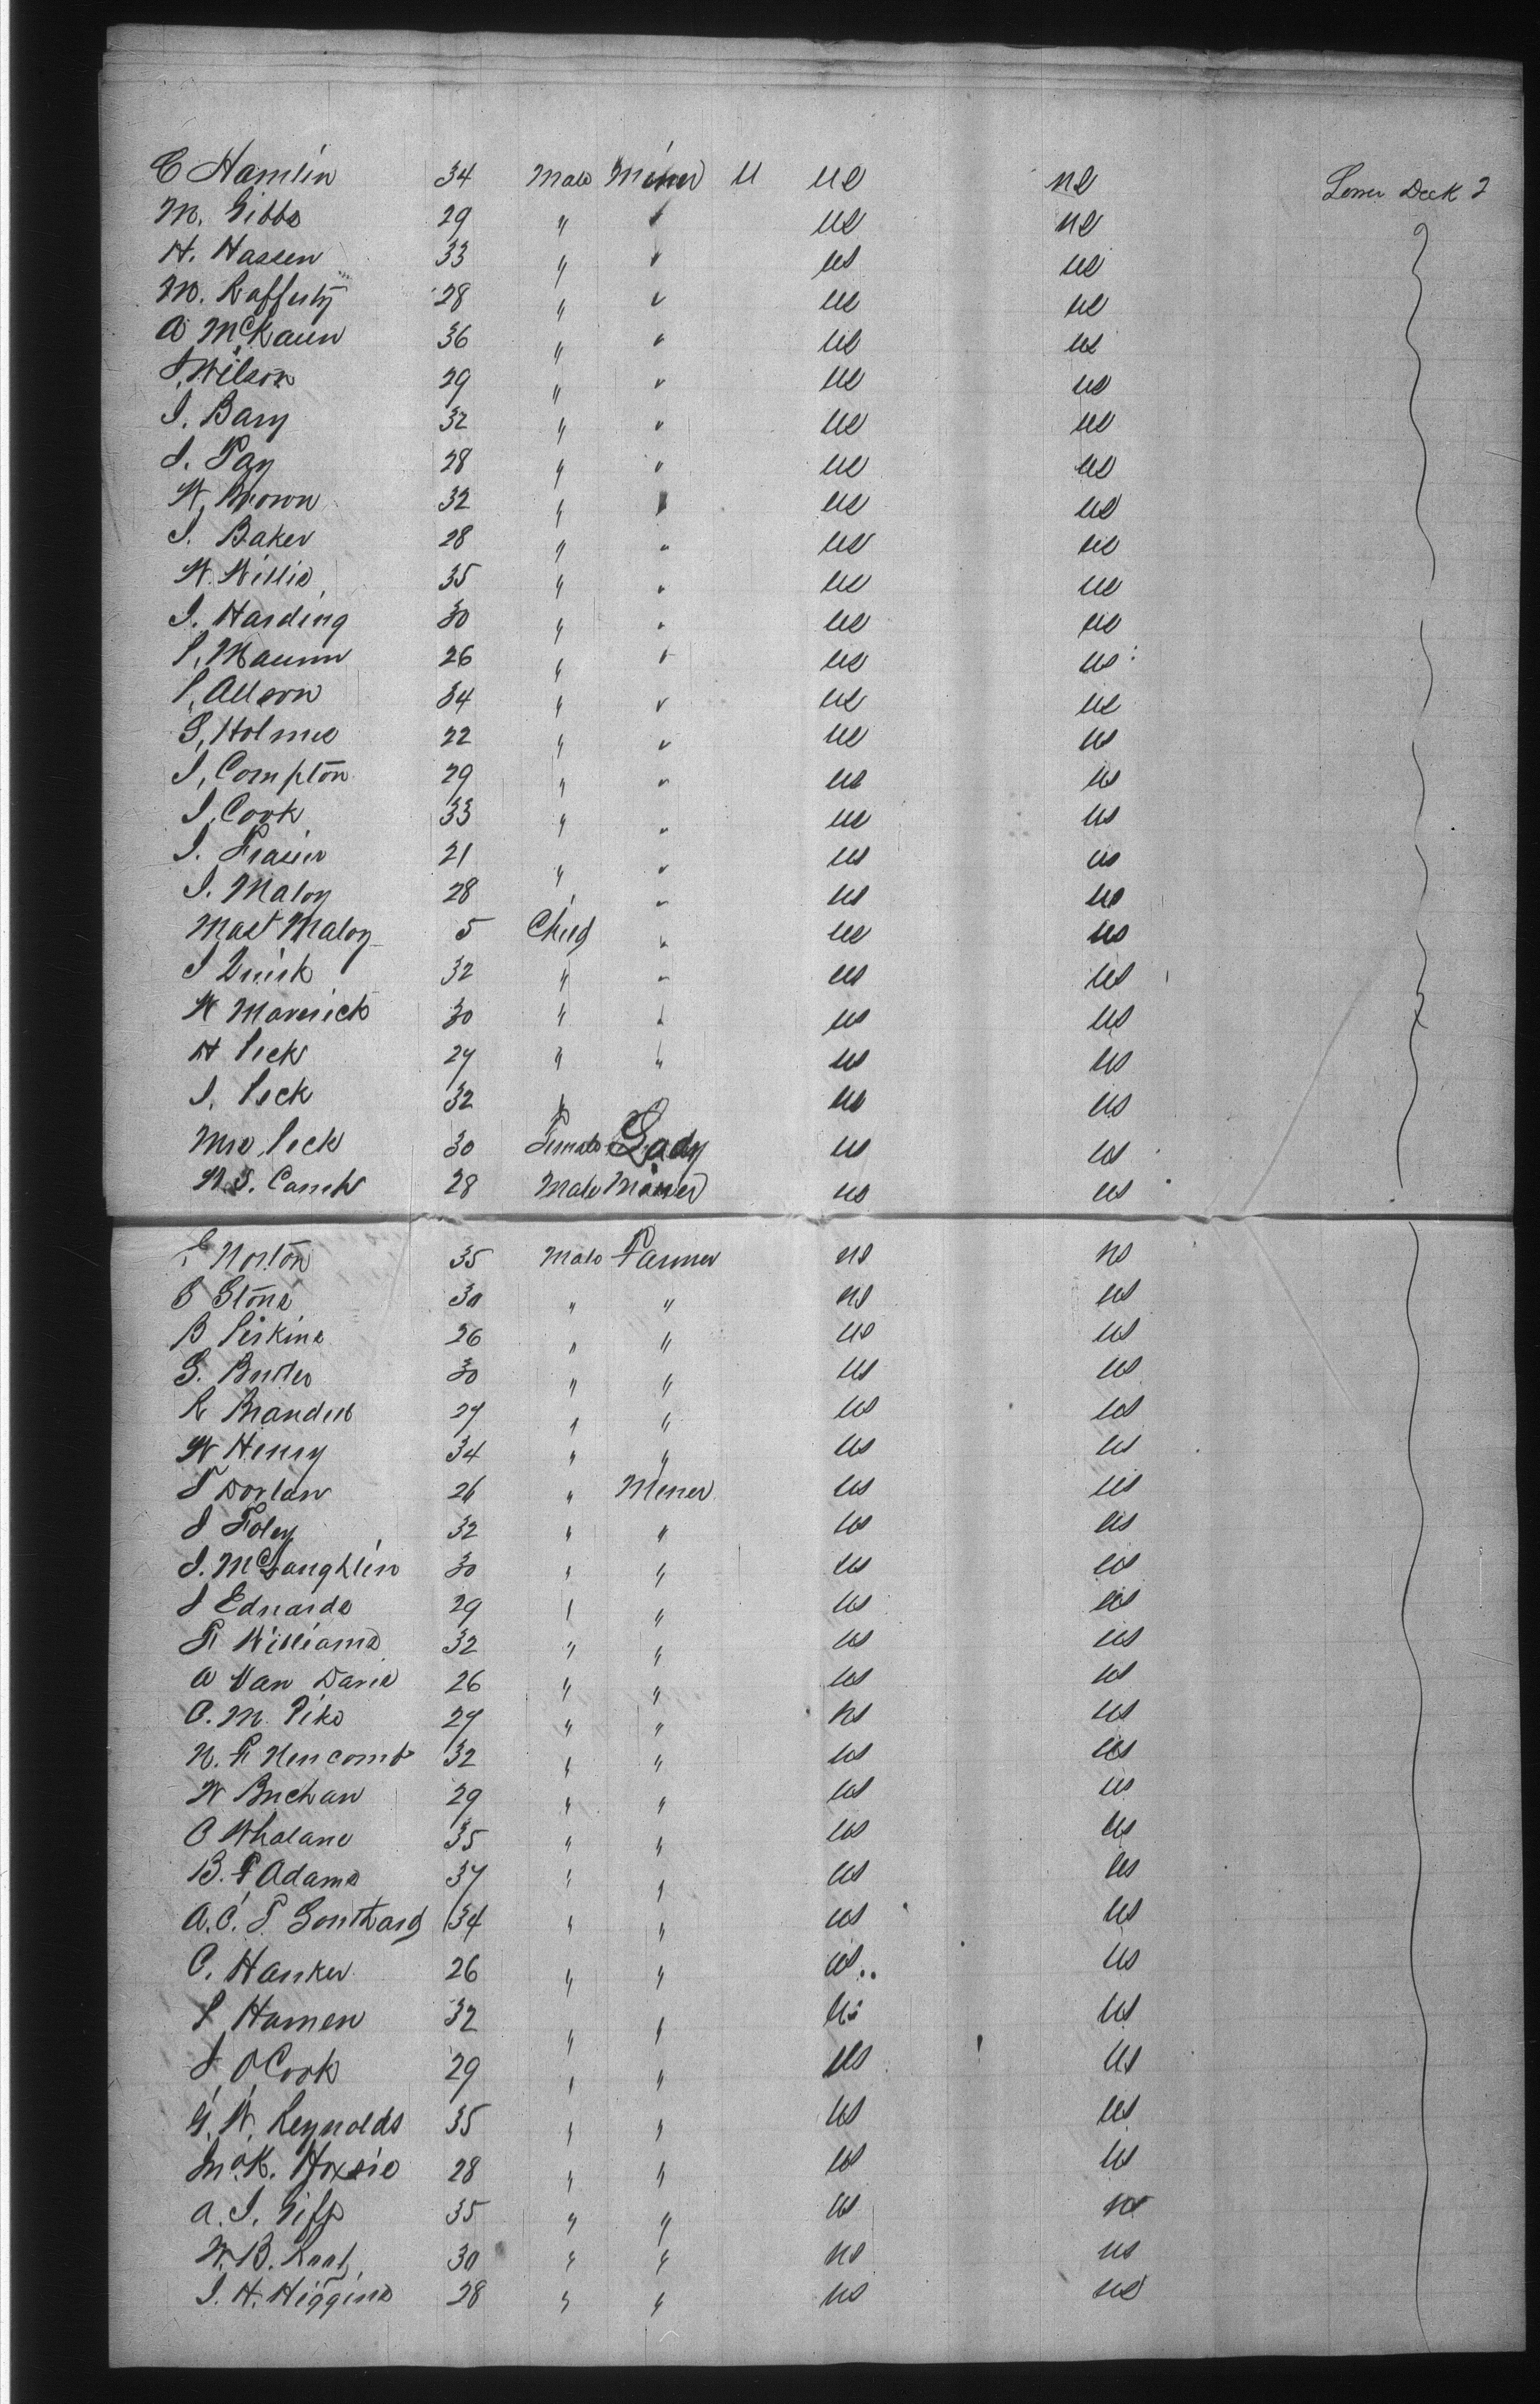 C Hamlin 34 Male Miner U US US Lower Deck 2
M. Gibbs 29 " " US US
H. Hassen 33 " " US US
M. Rafferty 28 " " US US
A McKaun 36 " " US US
J. Wilson 29 " " US US
J. Bary 32 " " US US
J. Fay 28 " " US US
W. Brown 32 " " US US
J. Baker 28 " " US US
W. Willis 35 " " US US
J. Harding 30 " " US US
P. Maunn 26 " " US US
P. Allson 34 " " US US
S. Holmes 22 " " US US
J. Compton 29 " " US US
J. Cook 33 " " US US
J. Frasier 21 " " US US
J. Maloy 28 " " US US
Mast Maloy 5 Child " US US
J Quirk 32 " " US US
W Maverick 30 " " US US
H Peck 27 " " US US
J. Peck 32 " US US
Mrs. Peck 30 Female Lady US US
W. S. Camb 28 Male Miner US US
E Norton 35 Male Farmer US US
S Stone 30 " " US US
B Perkins 26 " " US US
G. Butler 30 " " US US
R Brander 27 " " US US
W Henry 34 " " US US
T Dorlan 26 " Miner US US
J Foley 32 " " US US
J. McLaughlin 30 " " US US
J Edwards 29 " " US US
F Williams 32 " " US US
A Van Davis 26 " " US US
C. M. Pike 27 " " US US
N. F. Newcomb 32 " " US US
W Buchan 29 " " US US
C Whalane 35 " " US US
B. F Adams 37 " " US US
A. C. T. Southard 34 " " US US
C. Hanker 26 " " US US
P Hamen 32 " " US US
J. O Cook 29 " " US US
G. W. Reynolds 35 " " US US
Hoxsie 28 " " US US
A. J. 35 " " US US
W. B. 30 " " US US
J. H. Higgins 28 " " US US